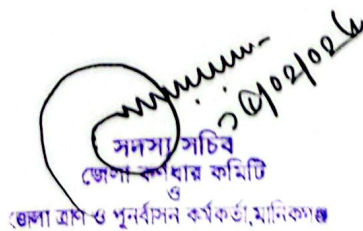 সদস্য সচিব
জেলা কর্ণধার কমিটি
ও
জেলা ত্রাণ ও পুনর্বাসন কর্মকর্তা, মানিকগঞ্জ